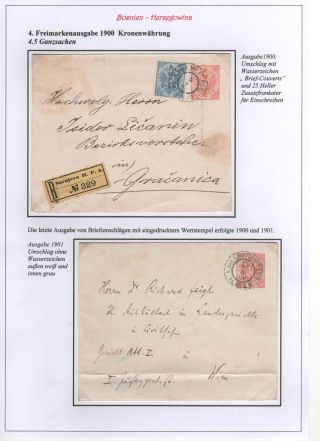 Bosnien – Herzegowina
4. Freimarkenausgabe 1900 Kronenwährung
4.5 Ganzsachen
Ausgabe1900,
Umschlag mit
Wasserzeichen
„ Brief-Couverts"
und 25 Heller
Zusatzfrankatur
für Einschreiben
Hochwohlg. Herrn
Isidor Ličanin
Bezirksvorsteher
in
Gračanica
Sarajevo H. P. A.
№ 329
Die letzte Ausgabe von Briefumschlägen mit eingedrucktem Wertstempel erfolgte 1900 und 1901.
Ausgabe 1901
Umschlag ohne
Wasserzeichen
außen weiß und
innen grau
Herrn Dr Richard
Wien